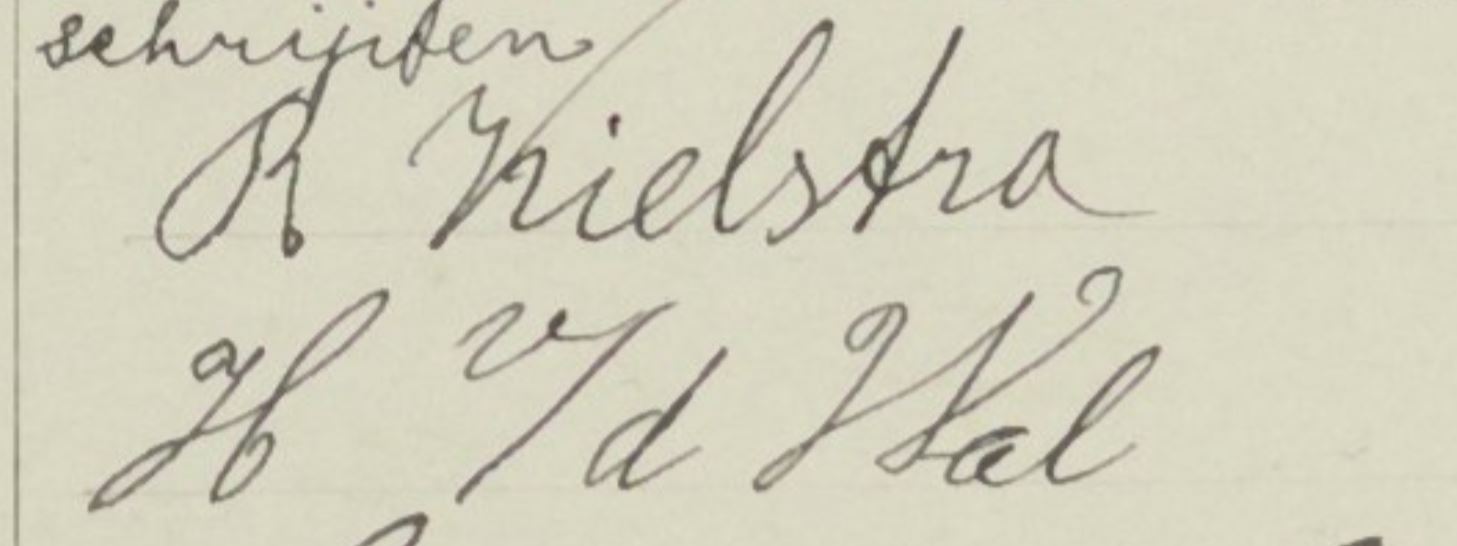 schrijften
R Kielstra
H v/d Wal